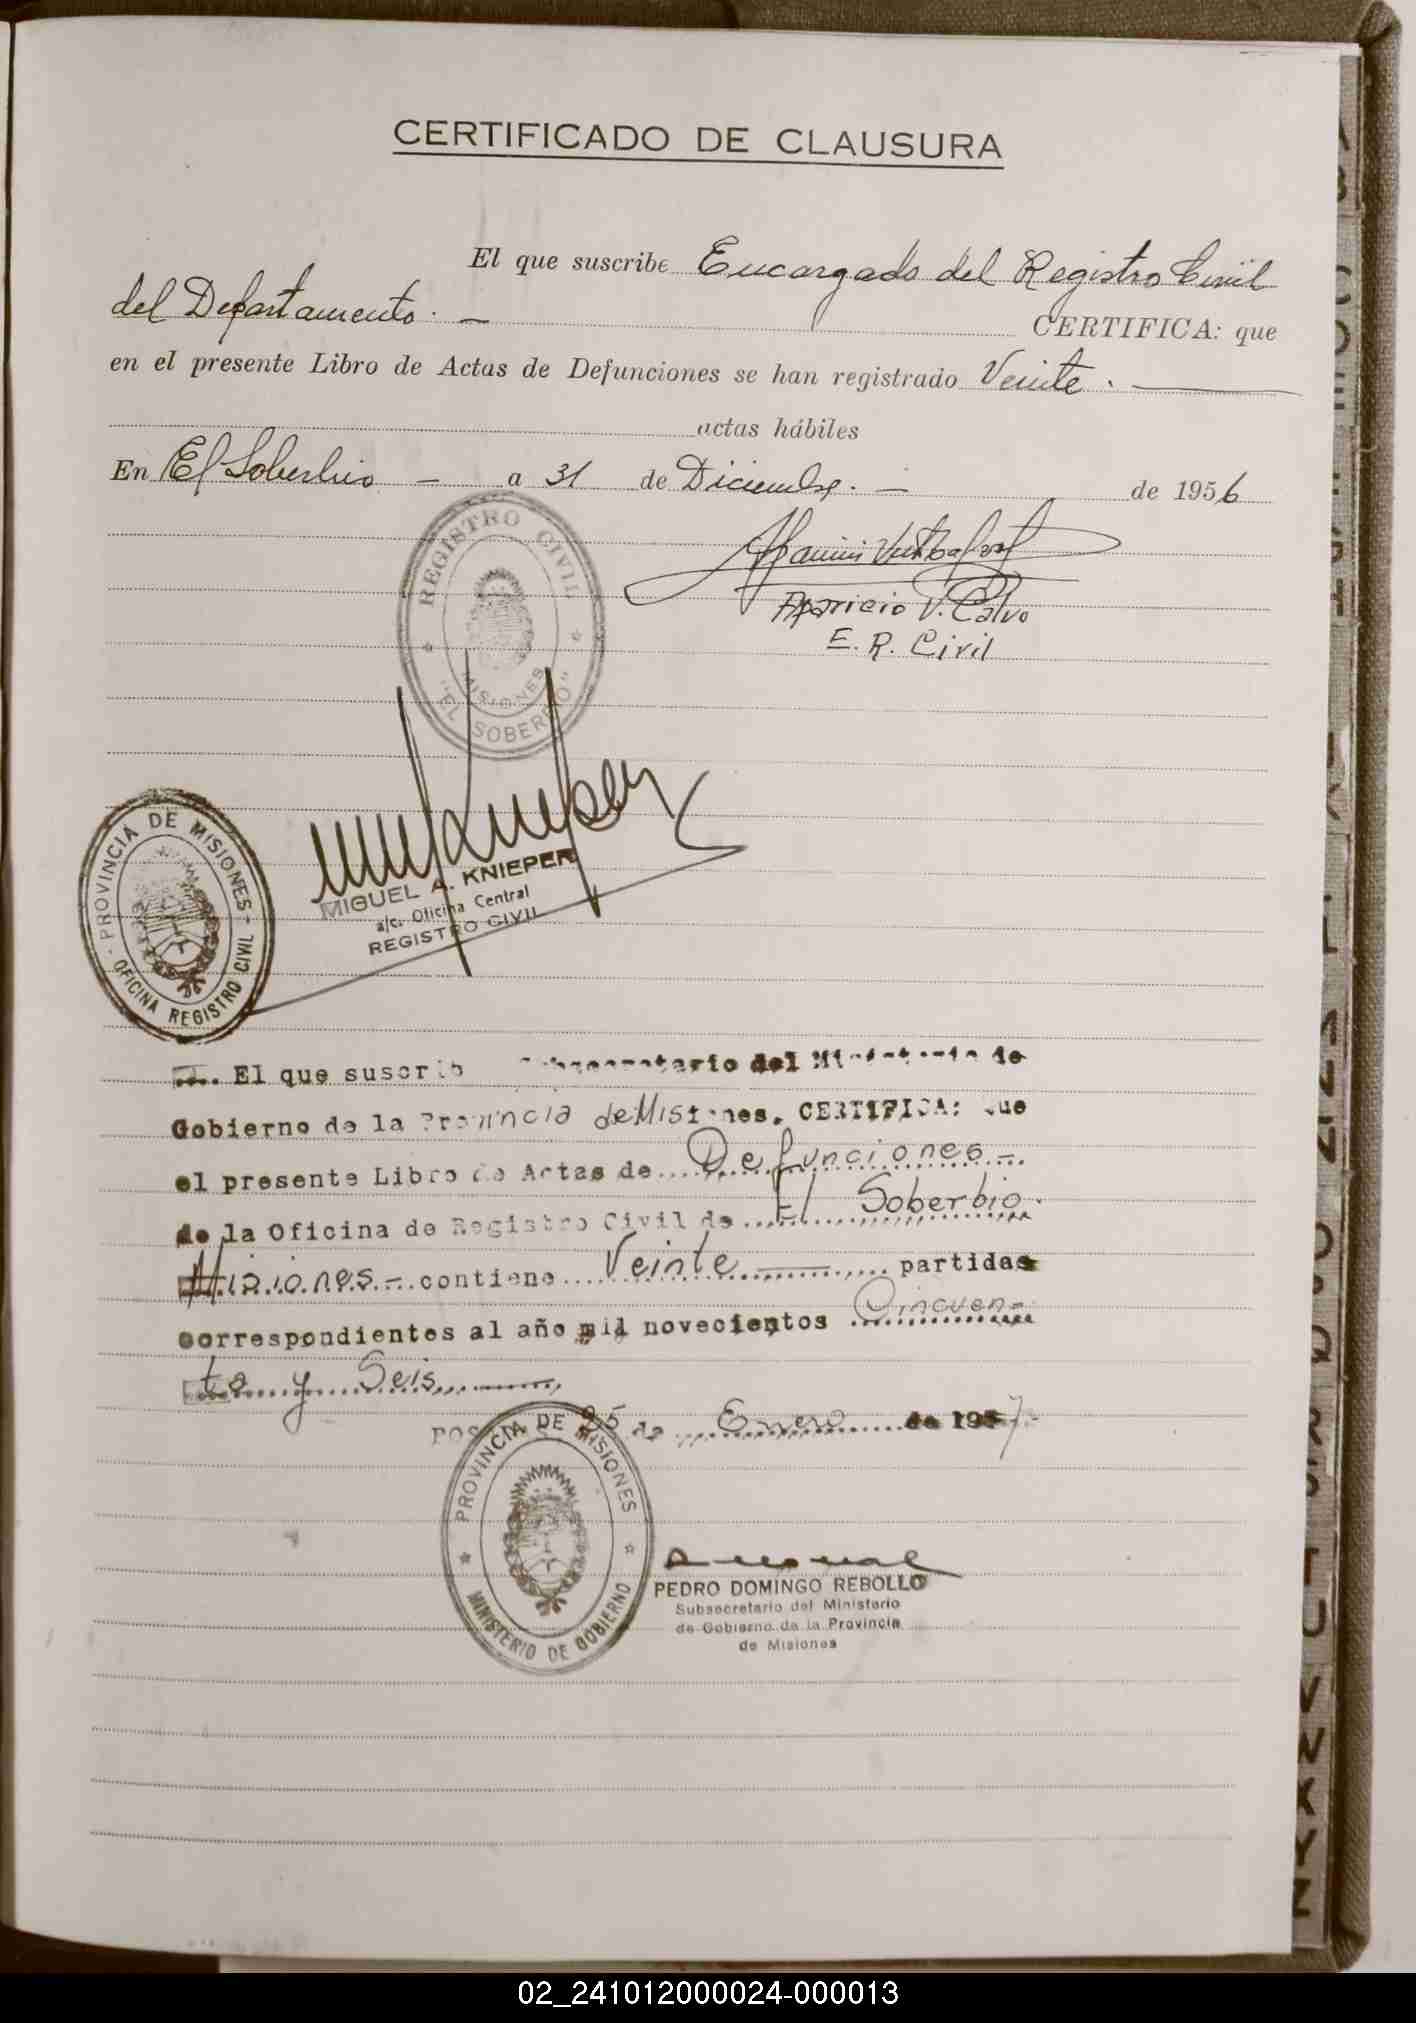 CERTIFICADO DE CLAUSURA
El que suscribe Encargado del Registro Civil
del Departamento. — CERTIFICA: que
en el presente Libro de Actas de Defunciones se han registrado Veinte. —
actas hábiles
En El Soberbio — a 31 de Diciembre. — de 1956
Aparicio V. Calvo
E. R. Civil
REGISTRO CIVIL
MISIONES
"EL SOBERBIO"
PROVINCIA DE MISIONES
OFICINA REGISTRO CIVIL
MIGUEL A. KNIEPER
a/c. Oficina Central
REGISTRO CIVIL
El que suscrib Subsecretario del Ministerio de
Gobierno de la Provincia de Misiones. CERTIFICA: Que
el presente Libro de Actas de Defunciones -
de la Oficina de Registro Civil de El Soberbio.
Misiones. - contiene Veinte — partidas
correspondientes al año mil novecientos Cincuen-
ta y Seis —
POS 25 de Enero de 1957 -
PROVINCIA DE MISIONES
MINISTERIO DE GOBIERNO
PEDRO DOMINGO REBOLLO
Subsecretario del Ministerio
de Gobierno de la Provincia
de Misiones
V
W
X
Y
Z
02_241012000024-000013